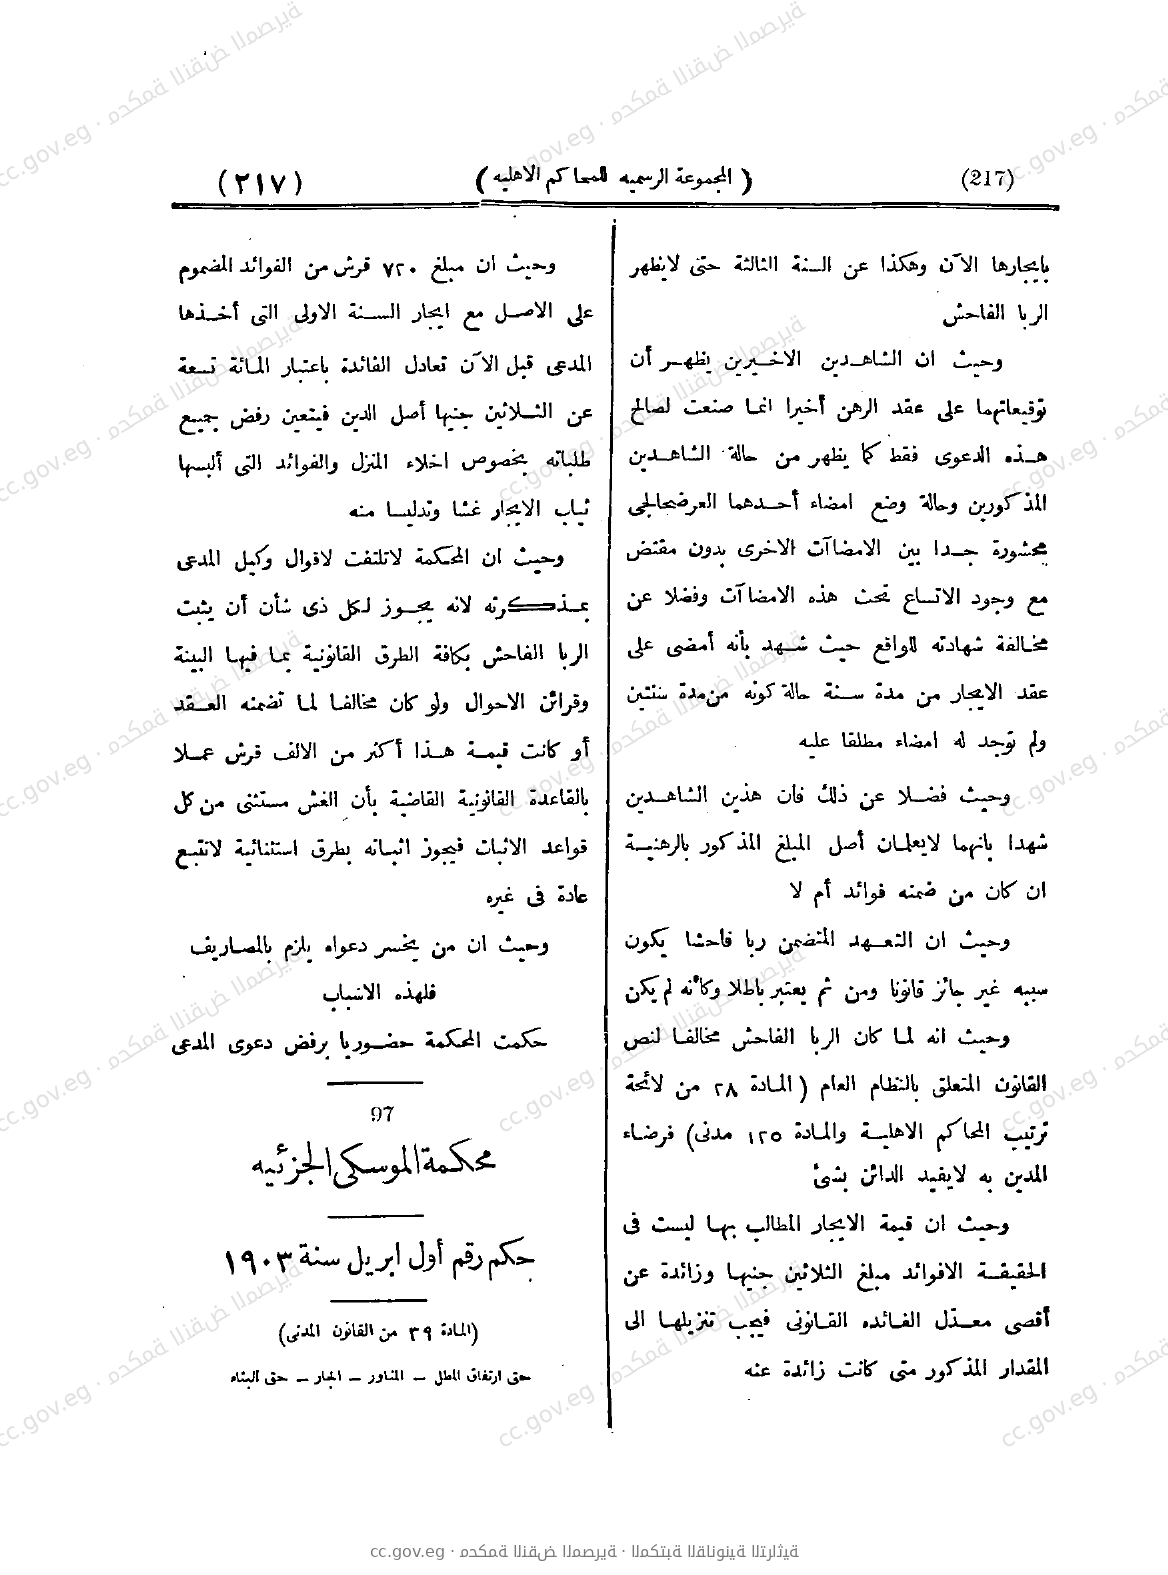 (217)
( المجموعة الرسميه للمحاكم الاهليه )
(٢١٧)
بايجارها الآن وهكذا عن السنة الثالثة حتى لايظهر
الربا الفاحش
وحيث ان الشاهدين الاخيرين يظهر أن
توقيعاتهما على عقد الرهن أخيرا انما صنعت لصالح
هذه الدعوى فقط كما يظهر من حالة الشاهدين
المذكورين وحالة وضع امضاء أحدهما العرضحالجى
محشورة جدا بين الامضاآت الاخرى بدون مقتض
مع وجود الاتساع تحت هذه الامضاآت وفضلا عن
مخالفة شهادته للواقع حيث شهد بأنه أمضى على
عقد الايجار من مدة سنة حالة كونه من مدة سنتين
ولم توجد له امضاء مطلقا عليه
وحيث فضلا عن ذلك فان هذين الشاهدين
شهدا بانهما لايعلمان أصل المبلغ المذكور بالرهنية
ان كان من ضمنه فوائد أم لا
وحيث ان التعهد المتضمن ربا فاحشا يكون
سببه غير جائز قانونا ومن ثم يعتبر باطلا وكأنه لم يكن
وحيث انه لما كان الربا الفاحش مخالفا لنص
القانون المتعلق بالنظام العام ( المادة ٢٨ من لائحة
ترتيب المحاكم الاهلية والمادة ١٢٥ مدنى) فرضاء
المدين به لايفيد الدائن بشئ
وحيث ان قيمة الايجار المطالب بها ليست فى
الحقيقة الافوائد مبلغ الثلاثين جنيها وزائدة عن
أقصى معدّل الفائده القانونى فيجب تنزيلها الى
المقدار المذكور متى كانت زائدة عنه
وحيث ان مبلغ ٧٢٠ قرش من الفوائد المضموم
على الاصل مع ايجار السنة الاولى التى أخذها
المدعى قبل الآن تعادل الفائدة باعتبار المائة تسعة
عن الثلاثين جنيها أصل الدين فيتعين رفض جميع
طلباته بخصوص اخلاء المنزل والفوائد التى ألبسها
ثياب الايجار غشا وتدليسا منه
وحيث ان المحكمة لاتلتفت لاقوال وكيل المدعى
بمذكرته لانه يجوز لكل ذى شأن أن يثبت
الربا الفاحش بكافة الطرق القانونية بما فيها البينة
وقرائن الاحوال ولو كان مخالفا لما تضمنه العقد
أو كانت قيمة هذا أكثر من الالف قرش عملا
بالقاعدة القانونية القاضية بأن الغش مستثنى من كل
قواعد الاثبات فيجوز اثباته بطرق استثنائية لاتتبع
عادة فى غيره
وحيث ان من يخسر دعواه يلزم بالمصاريف
فلهذه الاسباب
حكمت المحكمة حضوريا برفض دعوى المدعى
97
محكمة الموسكى الجزئيه
حكم رقم أول ابريل سنة ١٩٠٣
(المادة ٣٩ من القانون المدنى)
حق ارتفاق المطل – المناور – الجار – حق البناء
cc.gov.eg · محكمة النقض المصرية · المكتبة القانونية التراثية